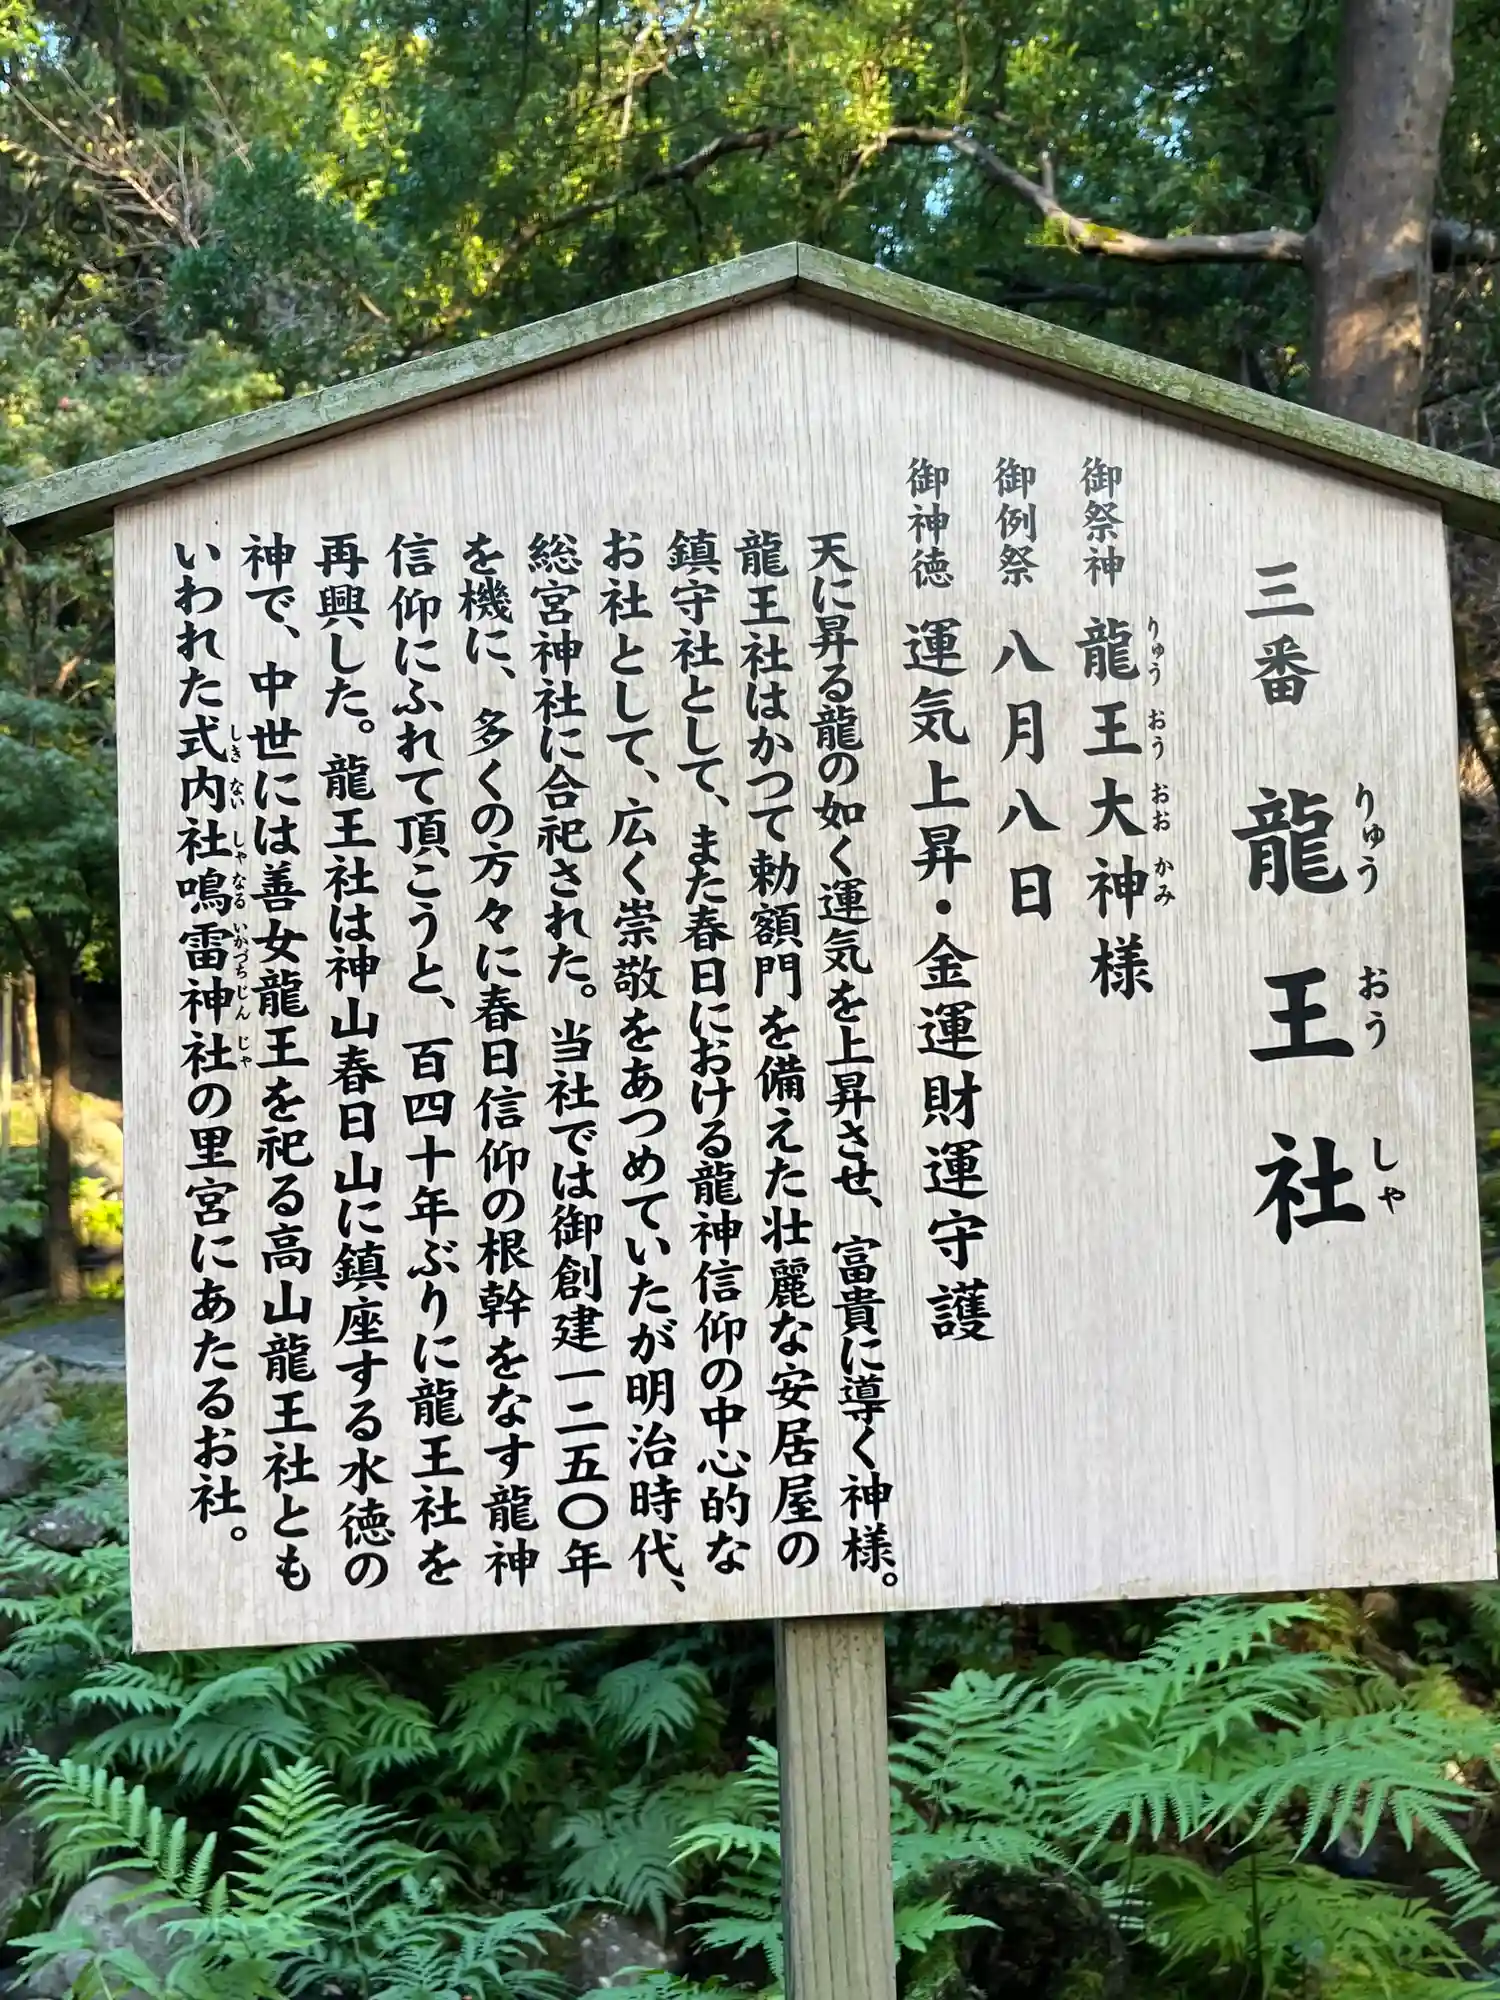 三番 龍王社
りゅう おう しゃ
御祭神 龍王大神様
りゅう おう おお かみ
御例祭 八月八日
御神徳 運気上昇・金運財運守護
天に昇る龍の如く運気を上昇させ、富貴に導く神様。
龍王社はかつて勅額門を備えた壮麗な安居屋の
鎮守社として、また春日における龍神信仰の中心的な
お社として、広く崇敬をあつめていたが明治時代、
総宮神社に合祀された。当社では御創建一二五〇年
を機に、多くの方々に春日信仰の根幹をなす龍神
信仰にふれて頂こうと、百四十年ぶりに龍王社を
再興した。龍王社は神山春日山に鎮座する水徳の
神で、中世には善女龍王を祀る高山龍王社とも
いわれた式内社鳴雷神社の里宮にあたるお社。
しき ない しゃ なる いかづち じん じゃ